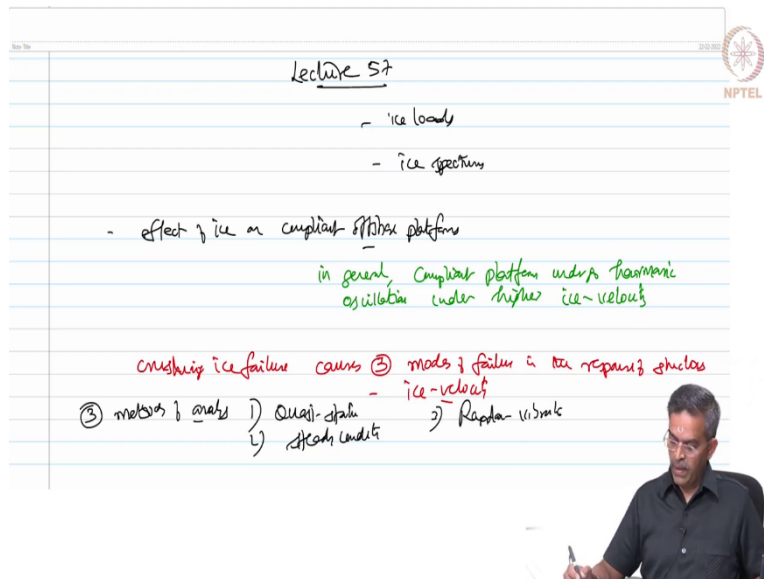 Note Title
22-02-2022
NPTEL
Lecture 57
- ice loads
- ice spectrum
- effect of ice on compliant offshore platforms
in general, compliant platform undergo harmonic
oscillation under higher ice-velocity
crushing ice failure causes ③ modes of failure in the response of structures
- ice-velocity
③ methods of analysis 1) Quasi-static 3) Random vibration
2) steady condition